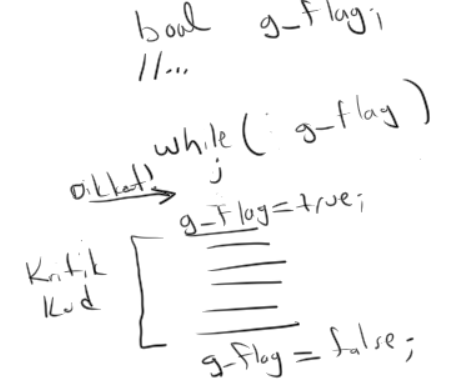 bool g_flag;
//...
while( g_flag)
;
Dikkat!
g_flag=true;
Kritik
Kod
g_flag = false;